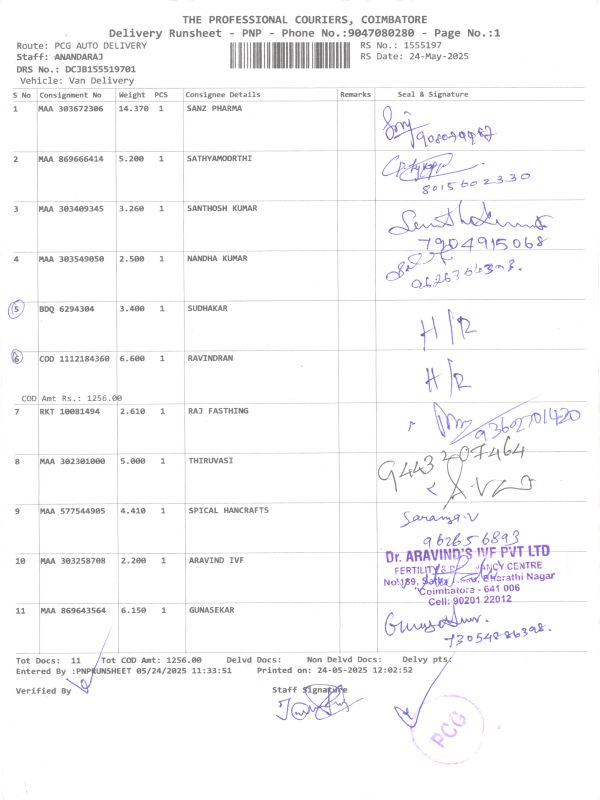 THE PROFESSIONAL COURIERS, COIMBATORE
Delivery Runsheet - PNP - Phone No.:9047080280 - Page No.:1
Route: PCG AUTO DELIVERY RS No.: 1555197
Staff: ANANDARAJ RS Date: 24-May-2025
DRS No.: DCJB155519701
Vehicle: Van Delivery
S No Consignment No Weight PCS Consignee Details Remarks Seal & Signature
1 MAA 303672306 14.370 1 SANZ PHARMA
2 MAA 869666414 5.200 1 SATHYAMOORTHI
8015602330
3 MAA 303409345 3.260 1 SANTHOSH KUMAR
7904915068
4 MAA 303549050 2.500 1 NANDHA KUMAR
5 BDQ 6294304 3.400 1 SUDHAKAR
H/R
6 COD 1112184360 6.600 1 RAVINDRAN
H/R
COD Amt Rs.: 1256.00
7 RKT 10081494 2.610 1 RAJ FASTHING
9362701420
8 MAA 302301000 5.000 1 THIRUVASI
9443207464
9 MAA 577544905 4.410 1 SPICAL HANCRAFTS
Saranya.V
962656893
10 MAA 303258708 2.200 1 ARAVIND IVF
Dr. ARAVIND'S IVF PVT LTD
FERTILITY & CENTRE
No:189, Bharathi Nagar
Coimbatore - 641 006
Cell: 90201 22012
11 MAA 869643564 6.150 1 GUNASEKAR
Tot Docs: 11 Tot COD Amt: 1256.00 Delvd Docs: Non Delvd Docs: Delvy pts:
Entered By :PNPRUNSHEET 05/24/2025 11:33:51 Printed on: 24-05-2025 12:02:52
Verified By Staff Signature
PCG